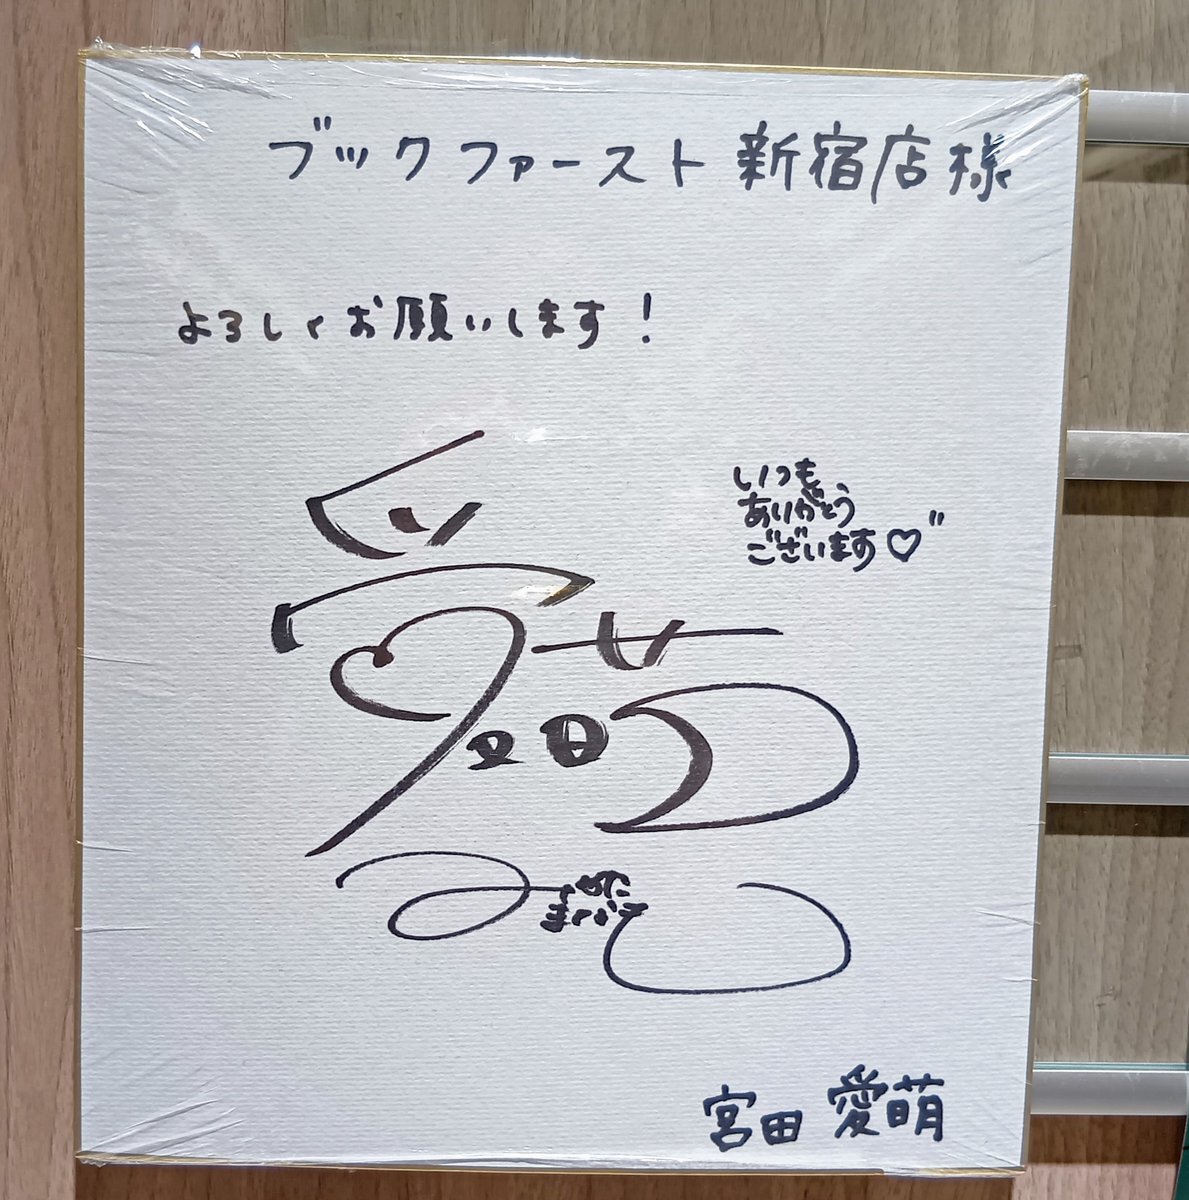 ブックファースト新宿店様
よろしくお願いします!
いつも
ありがとう
ございます♡"
愛萌
宮田 愛萌